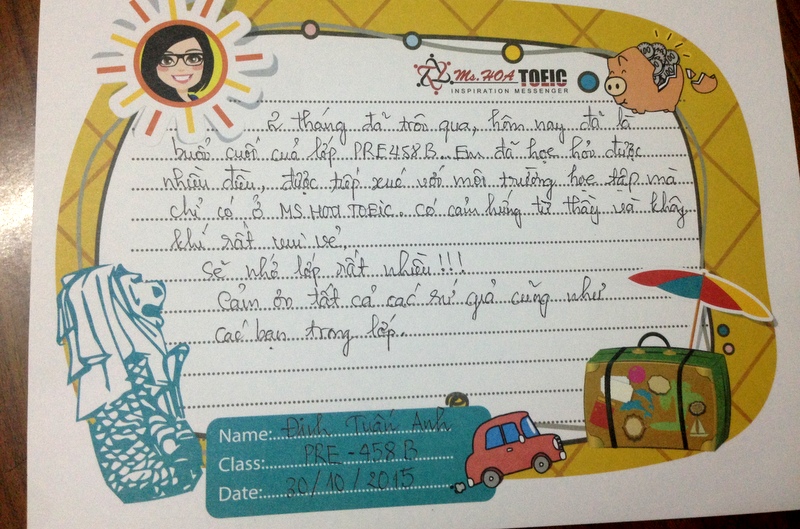 Ms. HOA TOEIC
INSPIRATION MESSENGER
2 tháng đã trôi qua, hôm nay đã là
buổi cuối của lớp PRE458B. Em đã học hỏi được
nhiều điều, được tiếp xúc với môi trường học tập mà
chỉ có ở MS.HOA TOEIC. Có cảm hứng từ thầy và không
khí rất vui vẻ.
Sẽ nhớ lớp rất nhiều!!!
Cảm ơn tất cả các sứ giả cũng như
các bạn trong lớp.
Name: Đinh Tuấn Anh
Class: PRE-458B
Date: 30/10/2015